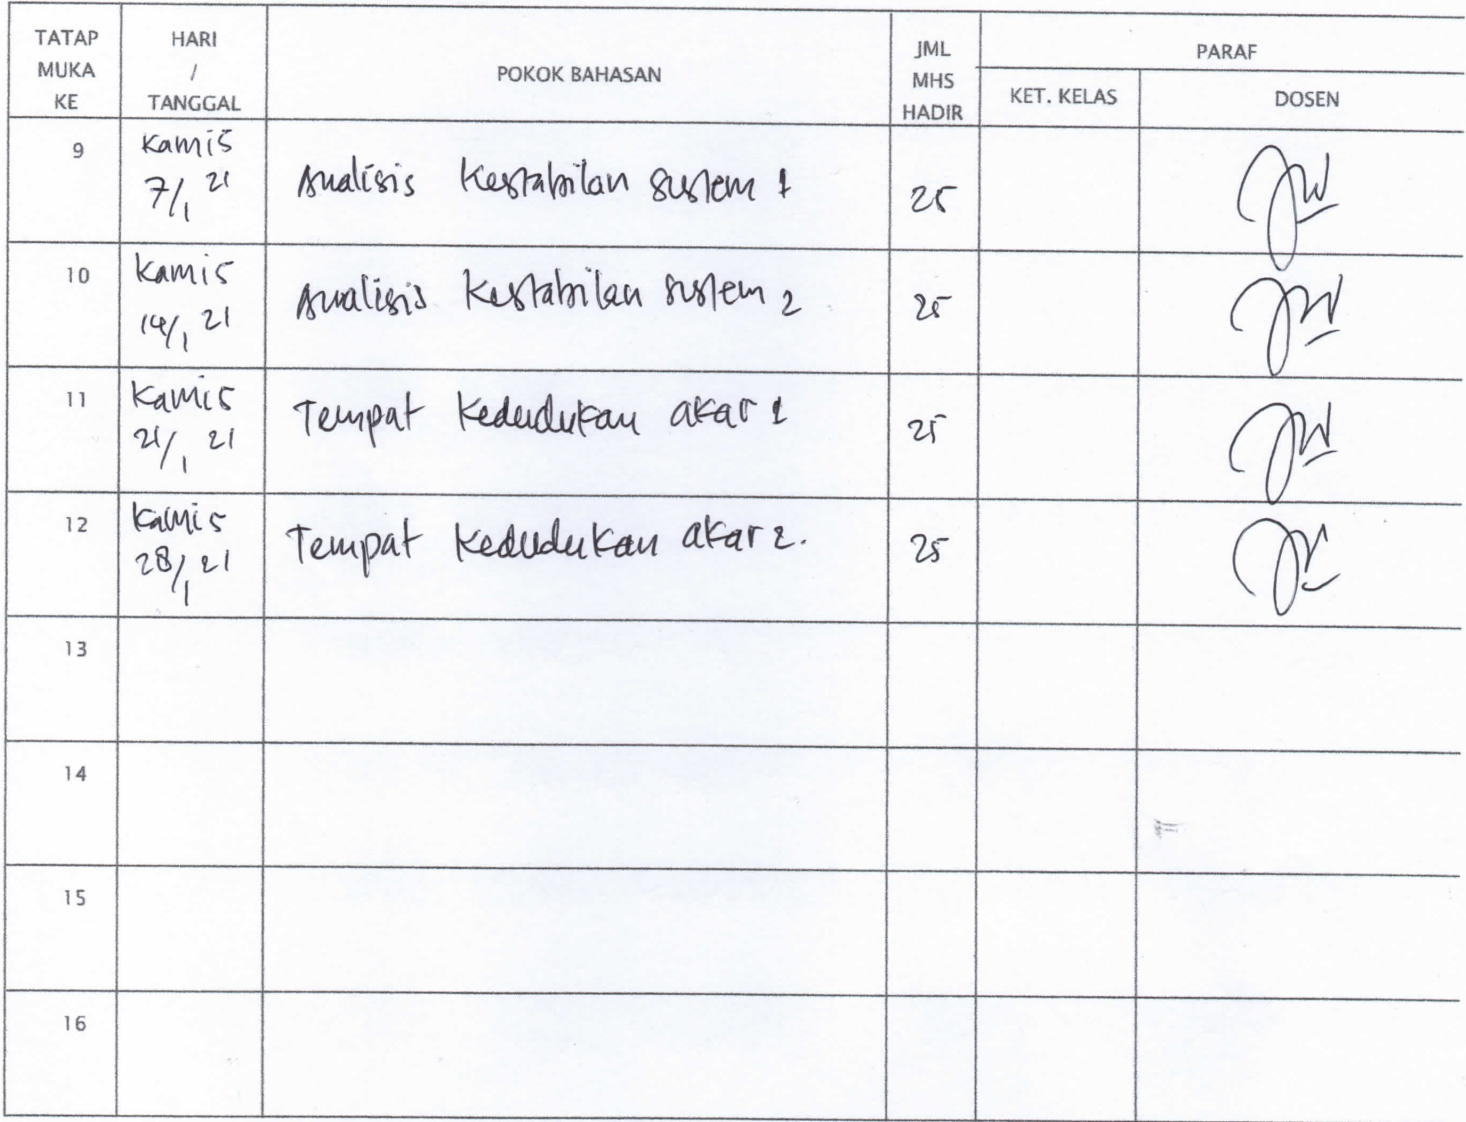 TATAP MUKA KE
HARI / TANGGAL
POKOK BAHASAN
JML MHS HADIR
PARAF
KET. KELAS
DOSEN
9
Kamis
7/1 21
Analisis Kestabilan sistem 1
25
10
Kamis
14/1 21
Analisis Kestabilan sistem 2
25
11
Kamis
21/1 21
Tempat Kedudukan akar 1
25
12
Kamis
28/1 21
Tempat Kedudukan akar 2.
25
13
14
15
16